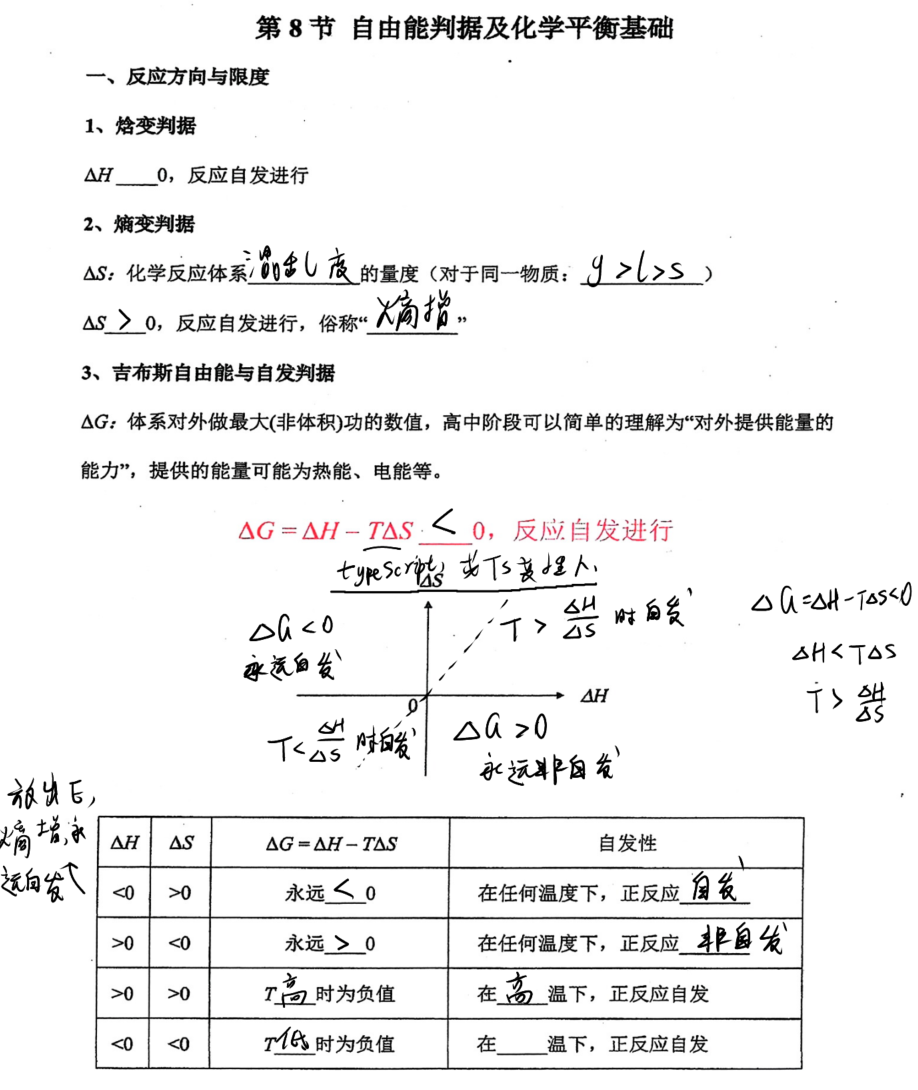 第 8 节 自由能判据及化学平衡基础
一、反应方向与限度
1、焓变判据
ΔH ____0，反应自发进行
2、熵变判据
ΔS：化学反应体系混乱度的量度（对于同一物质：g>l>s）
ΔS > 0，反应自发进行，俗称“熵增”
3、吉布斯自由能与自发判据
ΔG：体系对外做最大(非体积)功的数值，高中阶段可以简单的理解为“对外提供能量的
能力”，提供的能量可能为热能、电能等。
ΔG = ΔH – TΔS < 0，反应自发进行
typeScript，或Ts
ΔS
ΔG<0
永远自发
T > ΔH/ΔS 时自发
ΔG=ΔH-TΔS<0
ΔH<TΔS
T> ΔH/ΔS
0
ΔH
T< ΔH/ΔS 时自发
ΔG>0
永远非自发
放出E，
熵增，永
远自发
ΔH ΔS ΔG = ΔH – TΔS 自发性
<0 >0 永远 < 0 在任何温度下，正反应自发
>0 <0 永远 > 0 在任何温度下，正反应非自发
>0 >0 T高时为负值 在高温下，正反应自发
<0 <0 T低时为负值 在____温下，正反应自发